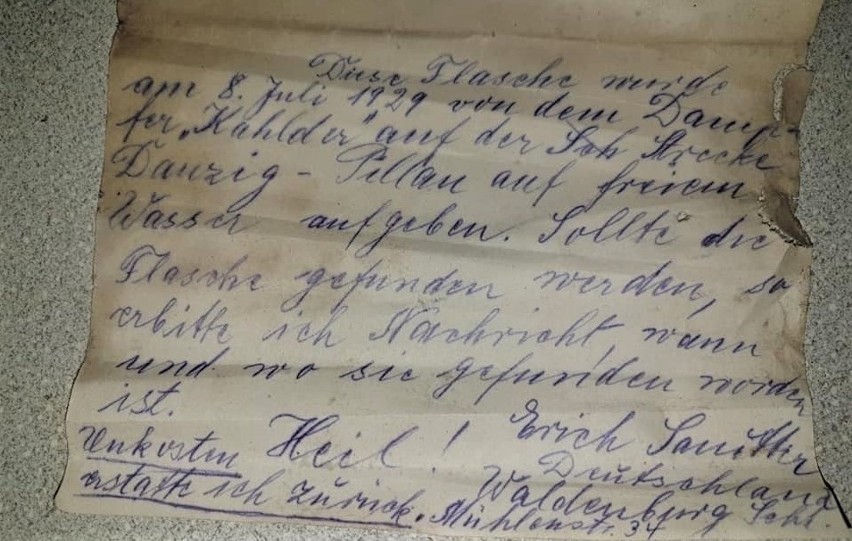 Diese Flasche wurde
am 8. Juli 1929 von dem Damp-
fer „Kahlder" auf der Strecke
Danzig - Pillau auf freiem
Wasser aufgeben. Sollte die
Flasche gefunden werden, so
erbitte ich Nachricht, wann
und wo sie gefunden worden
ist.
Heil! Erich
Unkosten Deutschland
erstatte ich zurück. Waldenburg Schl.
Mühlenstr. 37